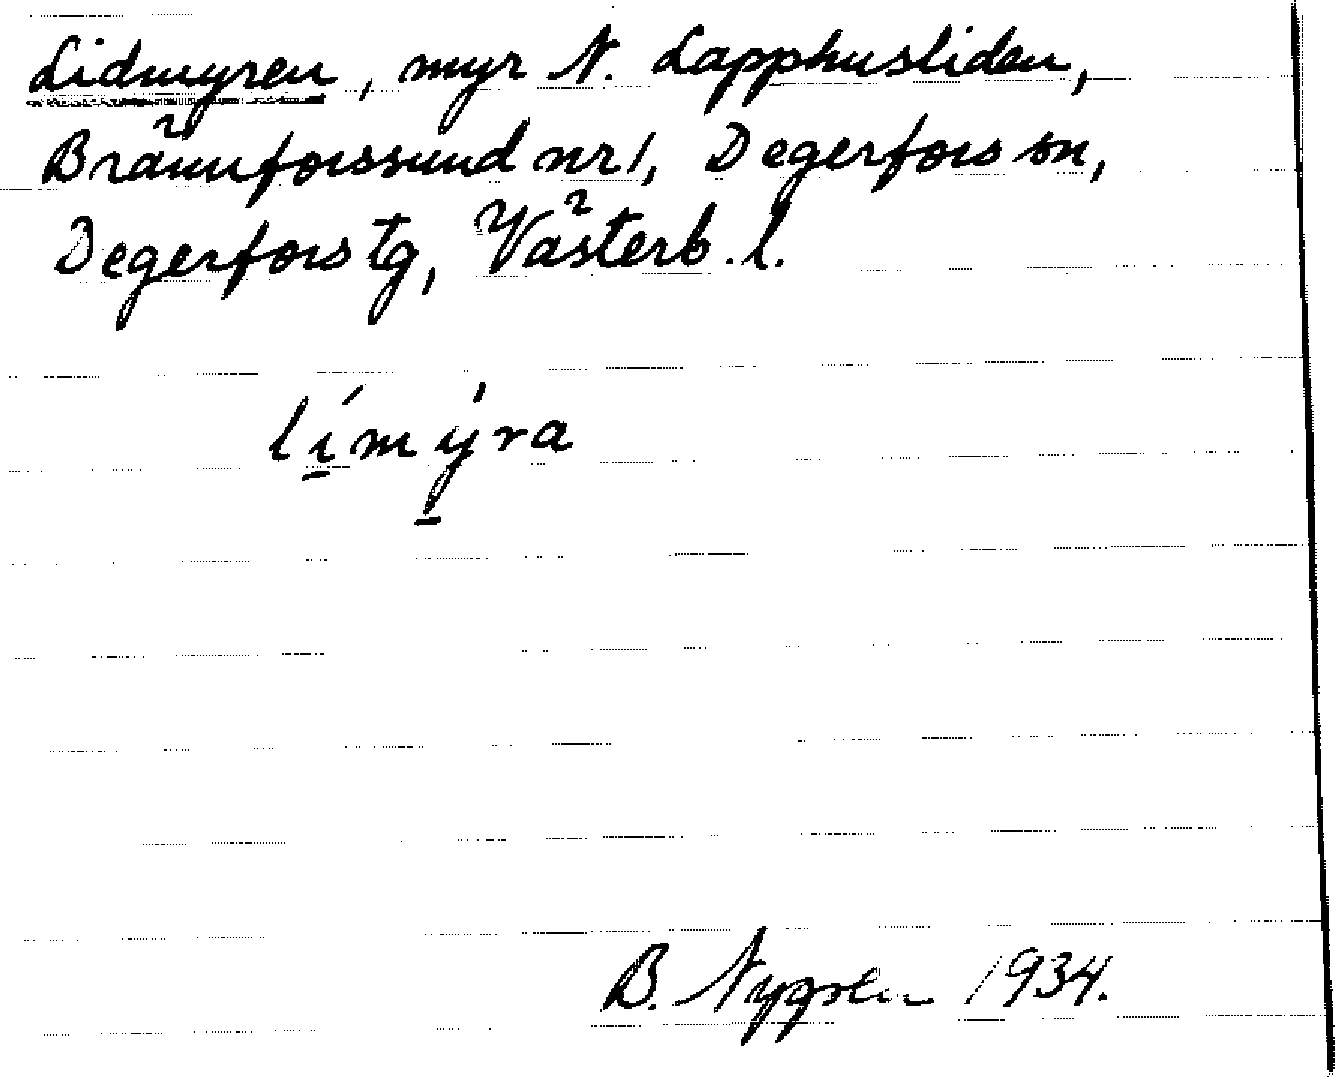 Lidmyren, myr N. Lapphusliden,
Brännforssund nr 1, Degerfors sn,
Degerfors tg, Västerb. l.
lí̱mý̱ra
B. Nygren 1934.